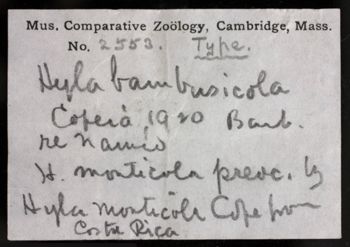 Mus. Comparative Zoölogy, Cambridge, Mass.
No. 2553. Type.
Hyla bambusicola
Copeia 1920 Barb.
re named
H. monticola preoc. by
Hyla monticola Cope from
Costa Rica